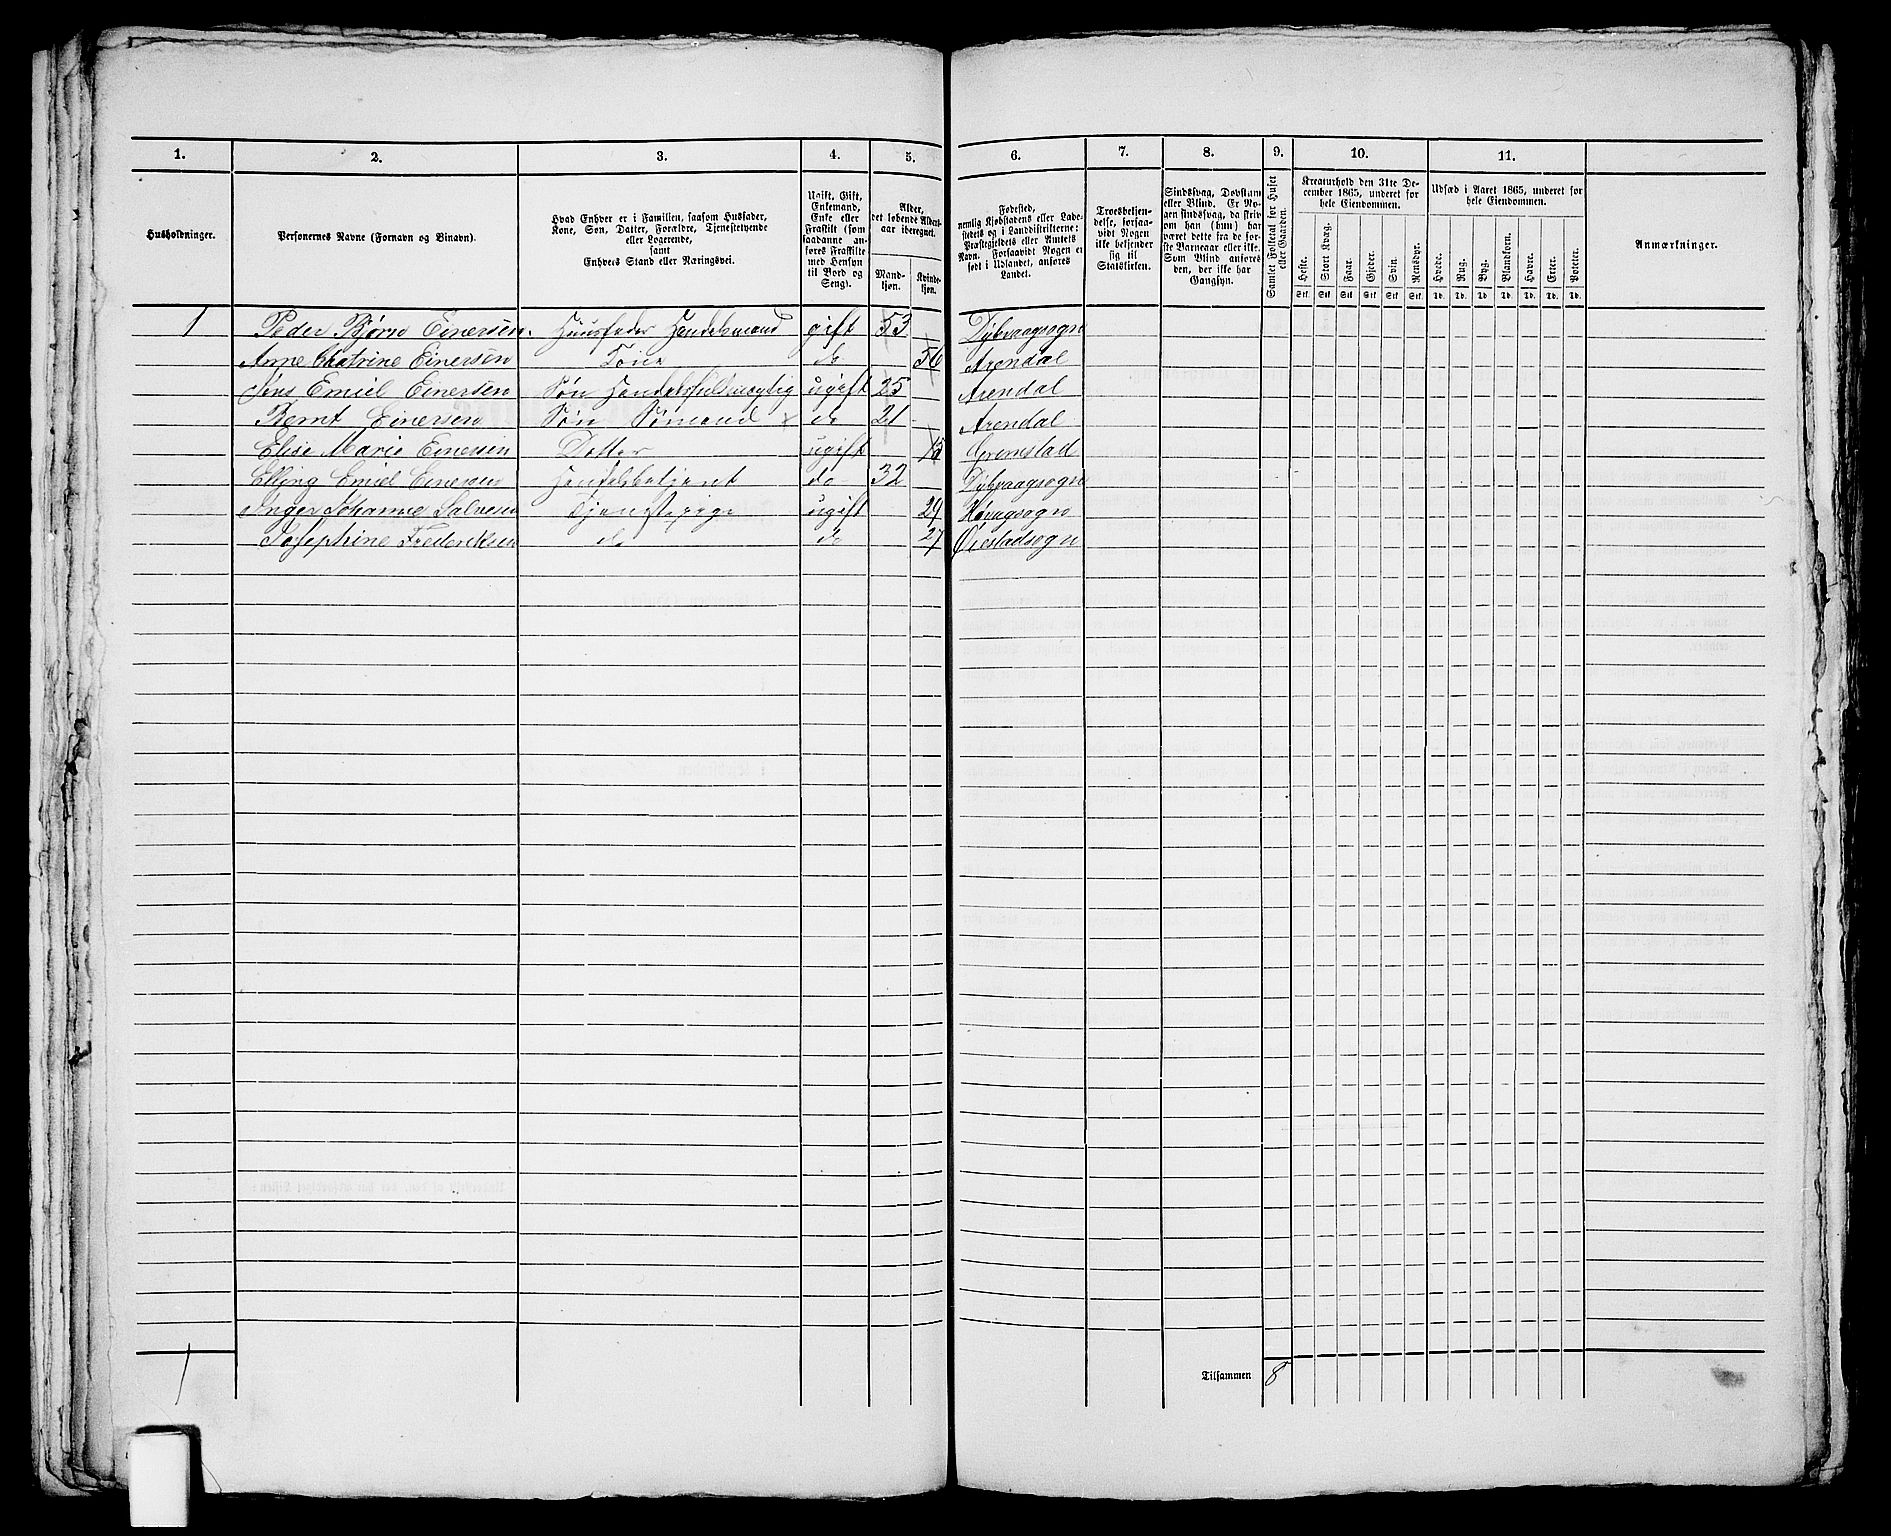 1. 2. 3. 4. 5. 6. 7. 8. 9. 10. 11.
Husholdninger.
Personernes Navne (Fornavn og Binavn).
Hvad Enhver er i Familien, saasom Husfader,
Kone, Søn, Datter, Forældre, Tjenestetyende
eller Logerende,
samt
Enhvers Stand eller Næringsvei.
Ugift, Gift,
Enkemand,
Enke eller
Fraskilt (som
saadanne an-
føres Fraskilte
med Hensyn
til Bord og
Seng).
Alder,
det løbende Alders-
aar iberegnet.
Mand-
kjøn.
Kvinde-
kjøn.
Fødested,
nemlig Kjøbstadens eller Lade-
stedets og i Landdistrikterne:
Præstegjeldets eller Amtets
Navn. Forsaavidt Nogen er
født i Udlandet, anføres
Landet.
Troesbekjen-
delse, forsaa-
vidt Nogen
ikke bekjender
sig til
Statskirken.
Sindssvag, Døvstum
eller Blind. Er No-
gen sindssvag, da skriv
om han (hun) har
været dette fra de før-
ste Barneaar eller ikke.
Som Blind anføres
den, der ikke har
Gangsyn.
Samlet Folketal for Huset
eller Gaarden.
Kreaturhold den 31te De-
cember 1865, underet for
hele Eiendommen.
Heste. Stort Kvæg. Faar. Gjeder. Svin. Rensdyr.
Stk. Stk. Stk. Stk. Stk. Stk.
Udsæd i Aaret 1865, underet for
hele Eiendommen.
Hvede. Rug. Byg. Blandkorn. Havre. Erter. Poteter.
Td. Td. Td. Td. Td. Td. Td.
Anmærkninger.
1 Peder Bjørn Einersen. Huusfader Handelsmand gift 53 Dybvaagsogn
Anne Chatrine Einersen Kone do 56 Arendal
Jens Emiel Einersen Søn Handelsfuldmægtig ugift 25 Arendal
Bernt Einersen Søn Sømand x do 21 Arendal
Elise Marie Einersen Datter ugift 15 Gremstad
Elling Emiel Einersen Handelsbetjent do 32 Dybvaagsogn
Inger Johanne Salvesen Tjenstepige ugift 29 Høvagsogn
Josephine Frederiksen do do 27 Øiestadsogn
1 Tilsammen 8